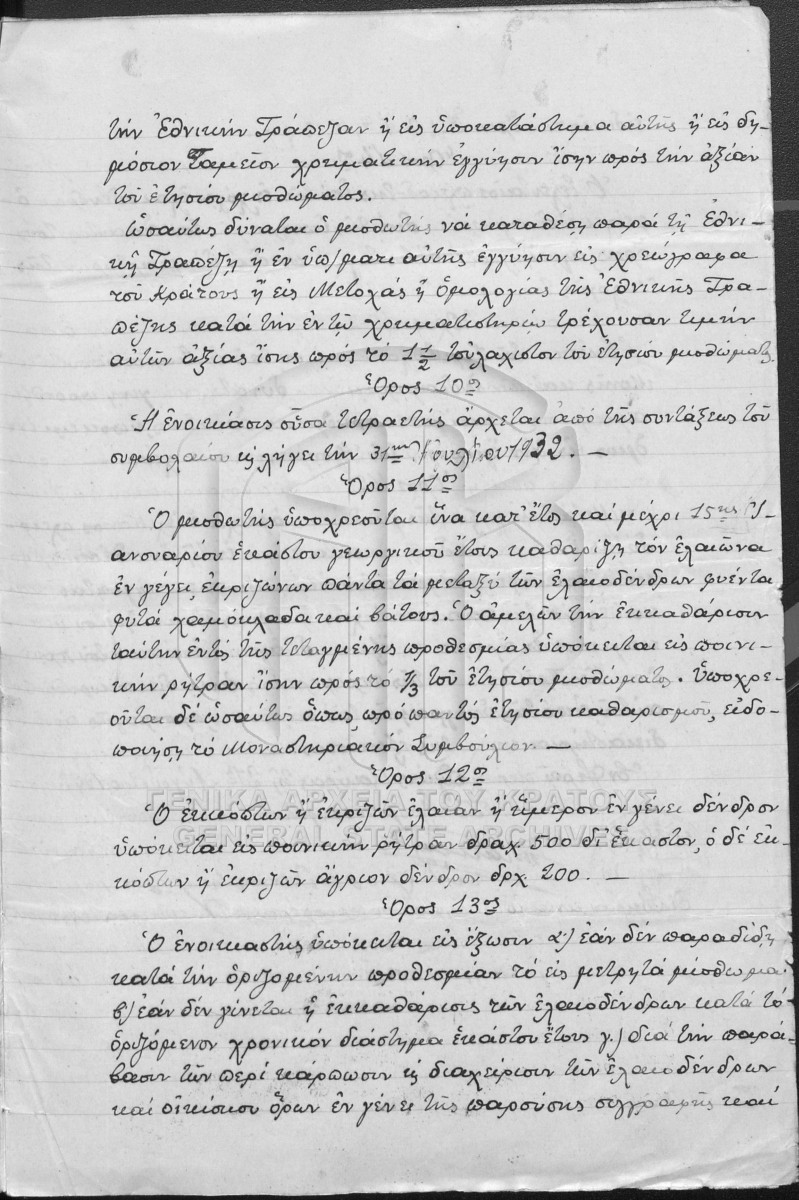 τήν Ἐθνικήν Τράπεζαν ἤ εἰς ὑποκατάστημα αὐτῆς ἤ εἰς δη-
μόσιον Ταμεῖον χρηματικήν ἐγγύησιν ἴσην πρός τήν ἀξίαν
τοῦ ἐτησίου μισθώματος.
Ὡσαύτως δύναται ὁ μισθωτής νά καταθέσῃ παρά τῇ Ἐθνι-
κῇ Τραπέζῃ ἤ ἐν ὑπ/ματι αὐτῆς ἐγγύησιν εἰς χρεώγραφα
τοῦ Κράτους ἤ εἰς Μετοχάς ἤ ὁμολογίας τῆς Ἐθνικῆς Τρα-
πέζης κατά τήν ἐν τῷ χρηματιστηρίῳ τρέχουσαν τιμήν
αὐτῶν ἀξίας ἴσης πρός τό 1 1/2 τοὐλάχιστον τοῦ ἐτησίου μισθώματος.
Ὅρος 10ος
Ἡ ἐνοικίασις οὖσα τετραετής ἄρχεται ἀπό τῆς συντάξεως τοῦ
συμβολαίου κ λήγει τήν 31ην Ἰουλίου 1932. —
Ὅρος 11ος
Ὁ μισθωτής ὑποχρεοῦται ἵνα κατ' ἔτος καί μέχρι 15ης Ἰ-
ανουαρίου ἑκάστου γεωργικοῦ ἔτους καθαρίζῃ τόν ἐλαιῶνα
ἐν γένει ἐκριζώνων πάντα τά μεταξύ τῶν ἐλαιοδένδρων φυέντα
φυτά χαμόκλαδα καί βάτους. Ὁ ἀμελῶν τήν ἐκκαθάρισιν
ταύτην ἐντός τῆς τεταγμένης προθεσμίας ὑπόκειται εἰς ποινι-
κήν ρήτραν ἴσην πρός τό 1/3 τοῦ ἐτησίου μισθώματος. Ὑποχρε-
οῦται δέ ὡσαύτως ὅπως, πρό παντός ἐτησίου καθαρισμοῦ, εἰδο-
ποιήσῃ τό Μοναστηριακόν Συμβούλιον —
Ὅρος 12ος
Ὁ ἐκκόπτων ἤ ἐκριζῶν ἐλαίαν ἤ ἥμερον ἐν γένει δένδρον
ὑπόκειται εἰς ποινικήν ρήτραν δραχ. 500 δι' ἕκαστον, ὁ δέ ἐκ-
κόπτων ἤ ἐκριζῶν ἄγριον δένδρον δρχ. 200. —
Ὅρος 13ος
Ὁ ἐνοικιαστής ὑπόκειται εἰς ἔξωσιν α) ἐάν δέν παραδίδῃ
κατά τήν ὁριζομένην προθεσμίαν τό εἰς μετρητά μίσθωμα
β) ἐάν δέν γίνεται ἡ ἐκκαθάρισις τῶν ἐλαιοδένδρων κατά τό
ὁριζόμενον χρονικόν διάστημα ἑκάστου ἔτους γ.) διά τήν παρά-
βασιν τῶν περί κάρπωσιν κ διαχείρισιν τῶν ἐλαιοδένδρων
καί οἰκίσκου ὅρων ἐν γένει τῆς παρούσης συγγραφῆς καί
ΓΕΝΙΚΑ ΑΡΧΕΙΑ ΤΟΥ ΚΡΑΤΟΥΣ
GENERAL STATE ARCHIVES